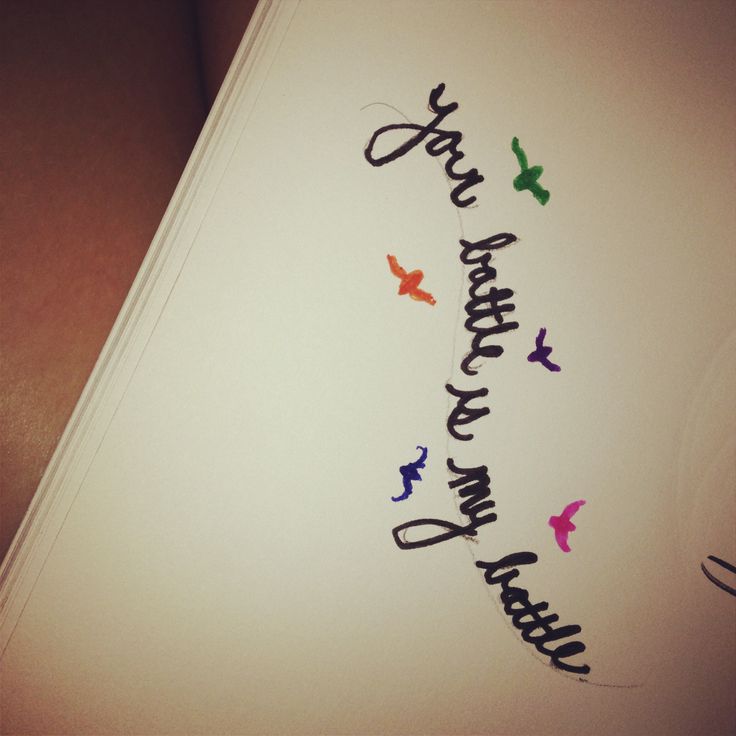 Your battle is my battle